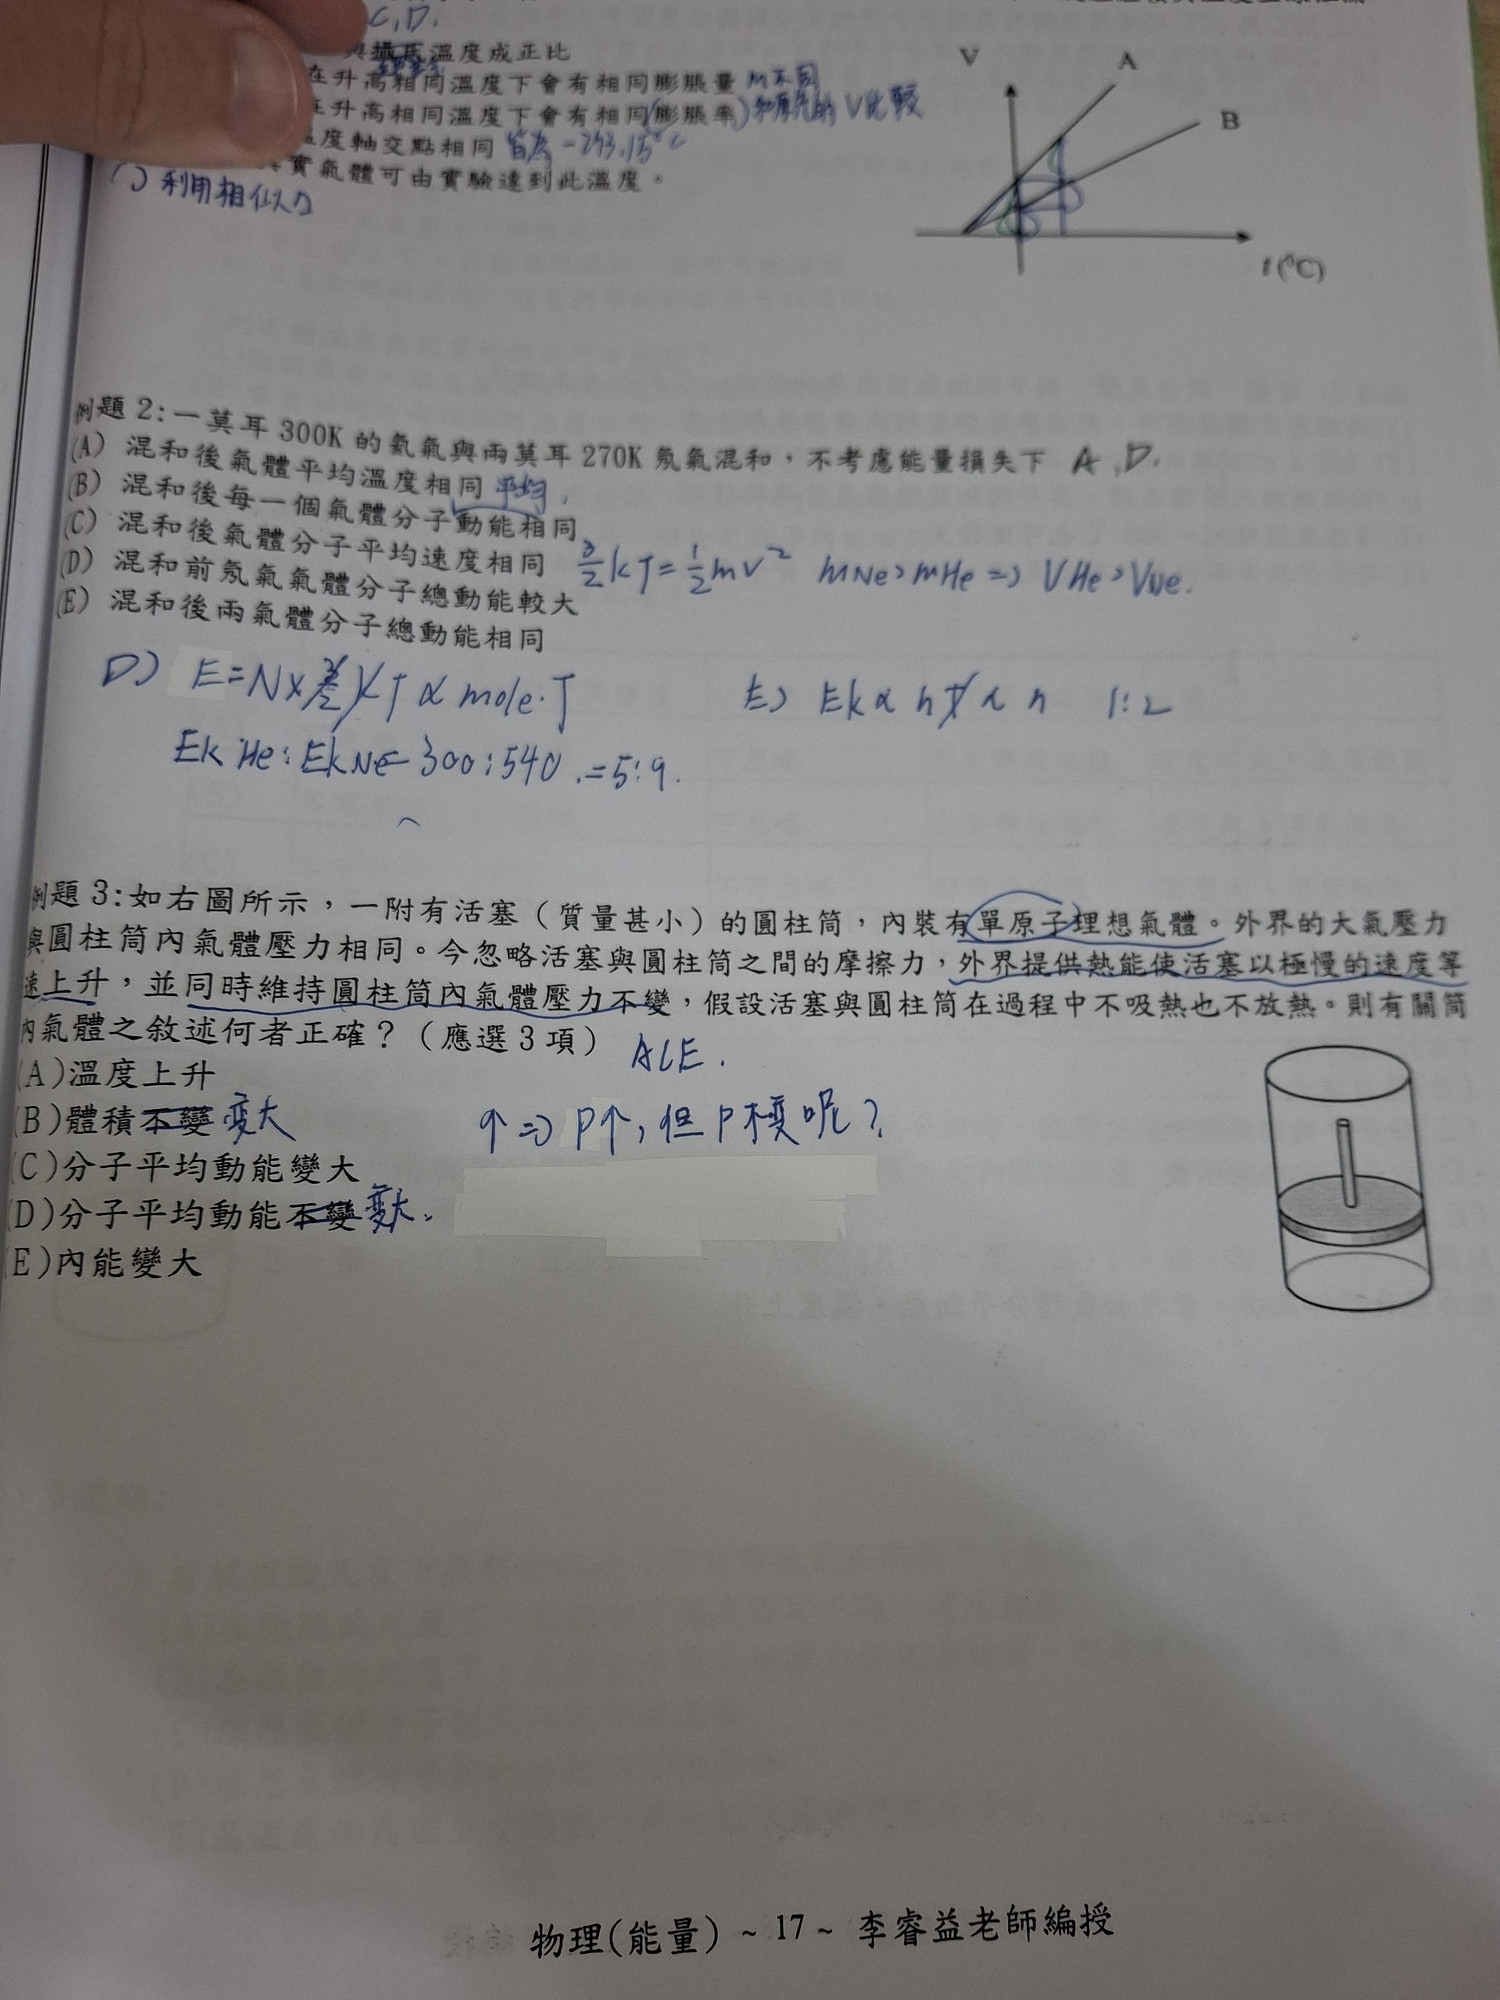 C, D.
與攝氏溫度成正比
在升高相同溫度下會有相同膨脹量 m不同
在升高相同溫度下會有相同(膨脹率)和原先的V比較
溫度軸交點相同 皆為 -273.15°C
實氣體可由實驗達到此溫度。
利用相似
V
A
B
t(⁰C)
例題 2:一莫耳 300K 的氦氣與兩莫耳 270K 氖氣混和，不考慮能量損失下 A, D.
(A) 混和後氣體平均溫度相同 平均,
(B) 混和後每一個氣體分子動能相同
(C) 混和後氣體分子平均速度相同
(D) 混和前氖氣氣體分子總動能較大
(E) 混和後兩氣體分子總動能相同
3/2 kT = 1/2 mv² mNe > mHe => VHe > VNe.
D) E = N × 3/2 kT ∝ mole·T
Ek He : Ek Ne = 300 : 540 = 5:9.
E) Ek ∝ nT ∝ n 1:2
例題 3:如右圖所示，一附有活塞（質量甚小）的圓柱筒，內裝有單原子理想氣體。外界的大氣壓力
與圓柱筒內氣體壓力相同。今忽略活塞與圓柱筒之間的摩擦力，外界提供熱能使活塞以極慢的速度等
速上升，並同時維持圓柱筒內氣體壓力不變，假設活塞與圓柱筒在過程中不吸熱也不放熱。則有關筒
內氣體之敘述何者正確？（應選 3 項） ACE.
(A)溫度上升
(B)體積不變 變大
↑ => P↑, 但P不變呢？
(C)分子平均動能變大
(D)分子平均動能不變 變大.
(E)內能變大
物理(能量) ~ 17 ~ 李睿益老師編授